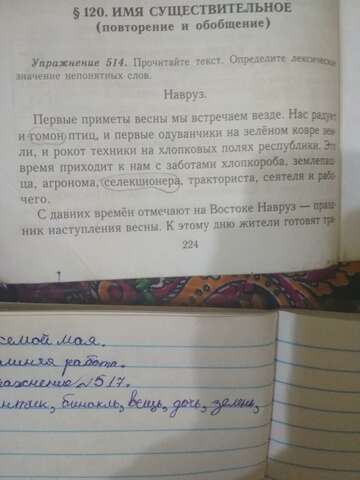 § 120. ИМЯ СУЩЕСТВИТЕЛЬНОЕ
(повторение и обобщение)
Упражнение 514. Прочитайте текст. Определите лексическое
значение непонятных слов.
Навруз.
Первые приметы весны мы встречаем везде. Нас радует
и гомон птиц, и первые одуванчики на зелёном ковре зем-
ли, и рокот техники на хлопковых полях республики. Это
время приходит к нам с заботами хлопкороба, землепаш-
ца, агронома, селекционера, тракториста, сеятеля и рабо-
чего.
С давних времён отмечают на Востоке Навруз — празд-
ник наступления весны. К этому дню жители готовят тра-
224
седьмой мая.
работа.
№517.
бинокль, вещь, дочь, зелень,